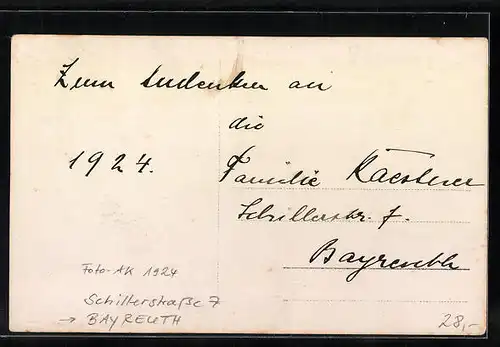 Zum Andenken an
die
1924.
Familie Kaestner
Schillerstr. 7.
Bayreuth
Foto-AK 1924
Schillerstraße 7
→ BAYREUTH
28,-